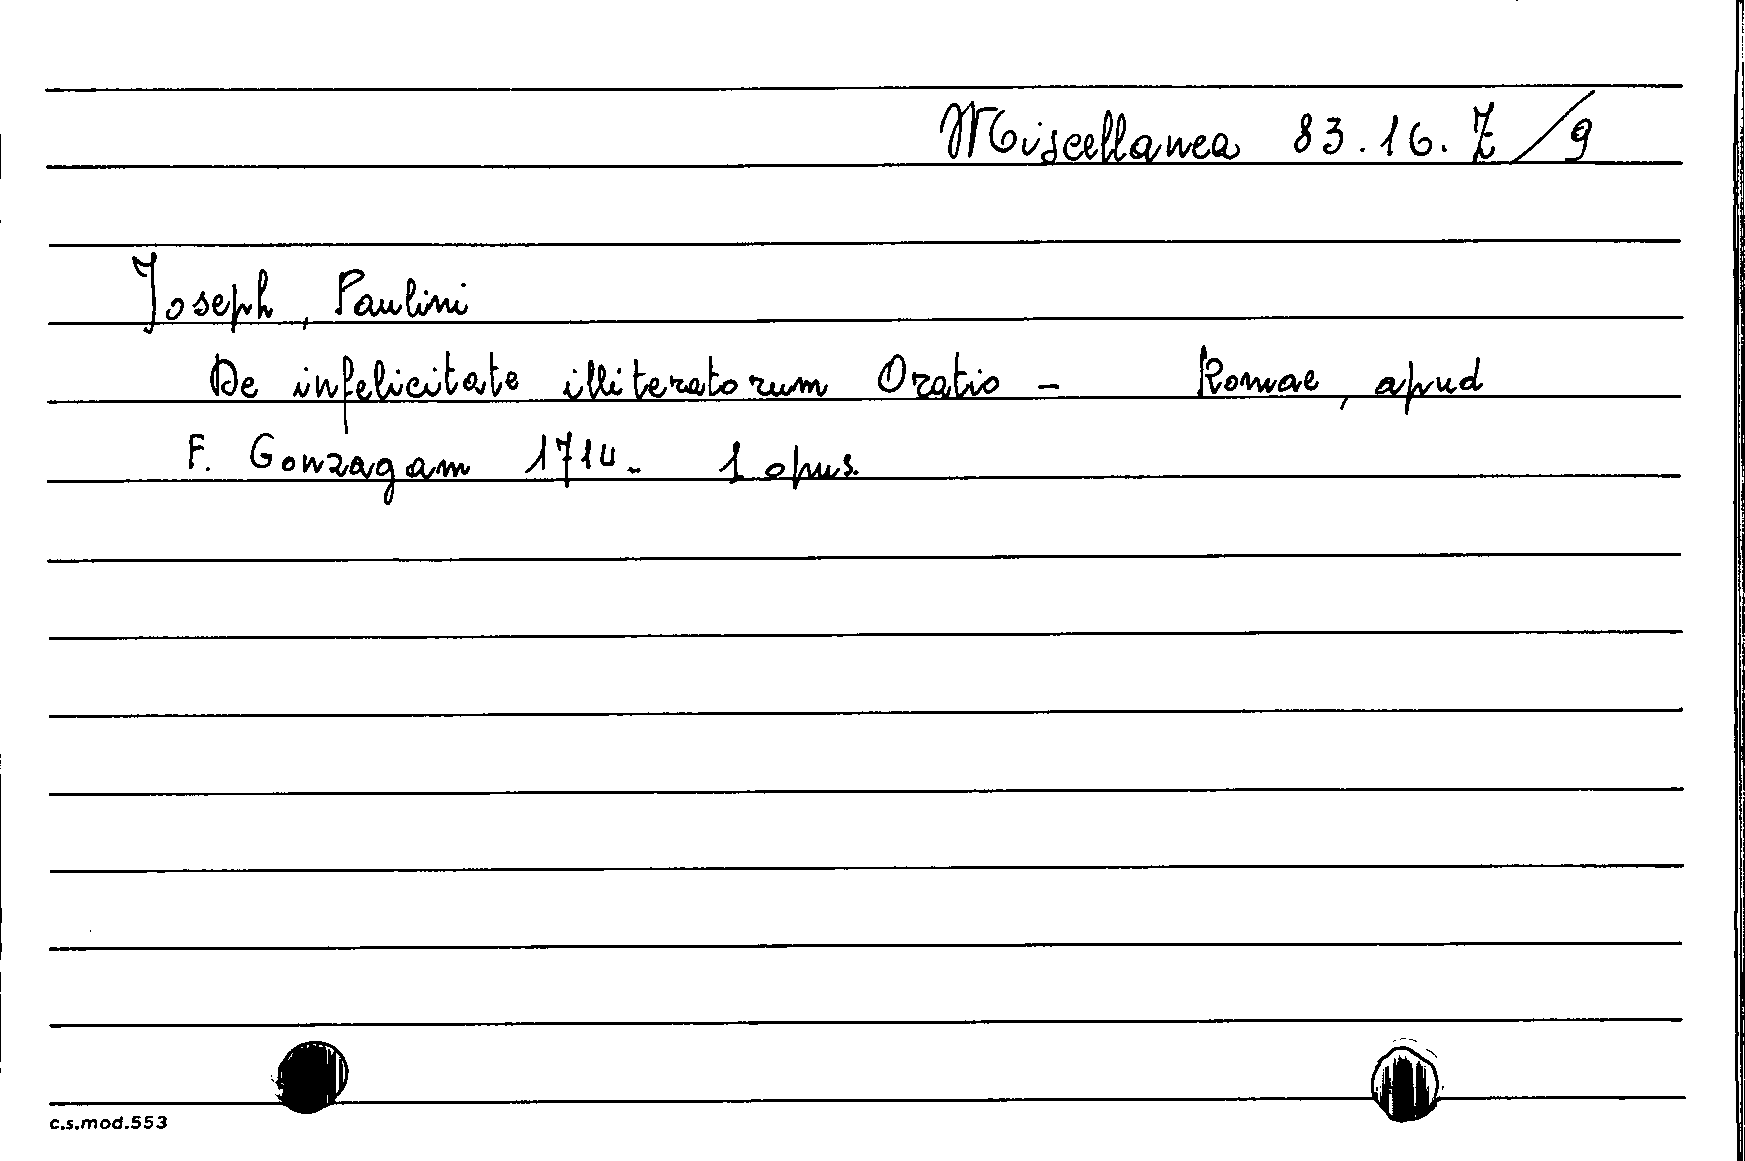 Miscellanea 83.16.Z/9
Joseph, Paulini
De infelicitate illiteratorum Oratio - Romae, apud
F. Gonzagam 1714. 1 opus.
c.s.mod.553